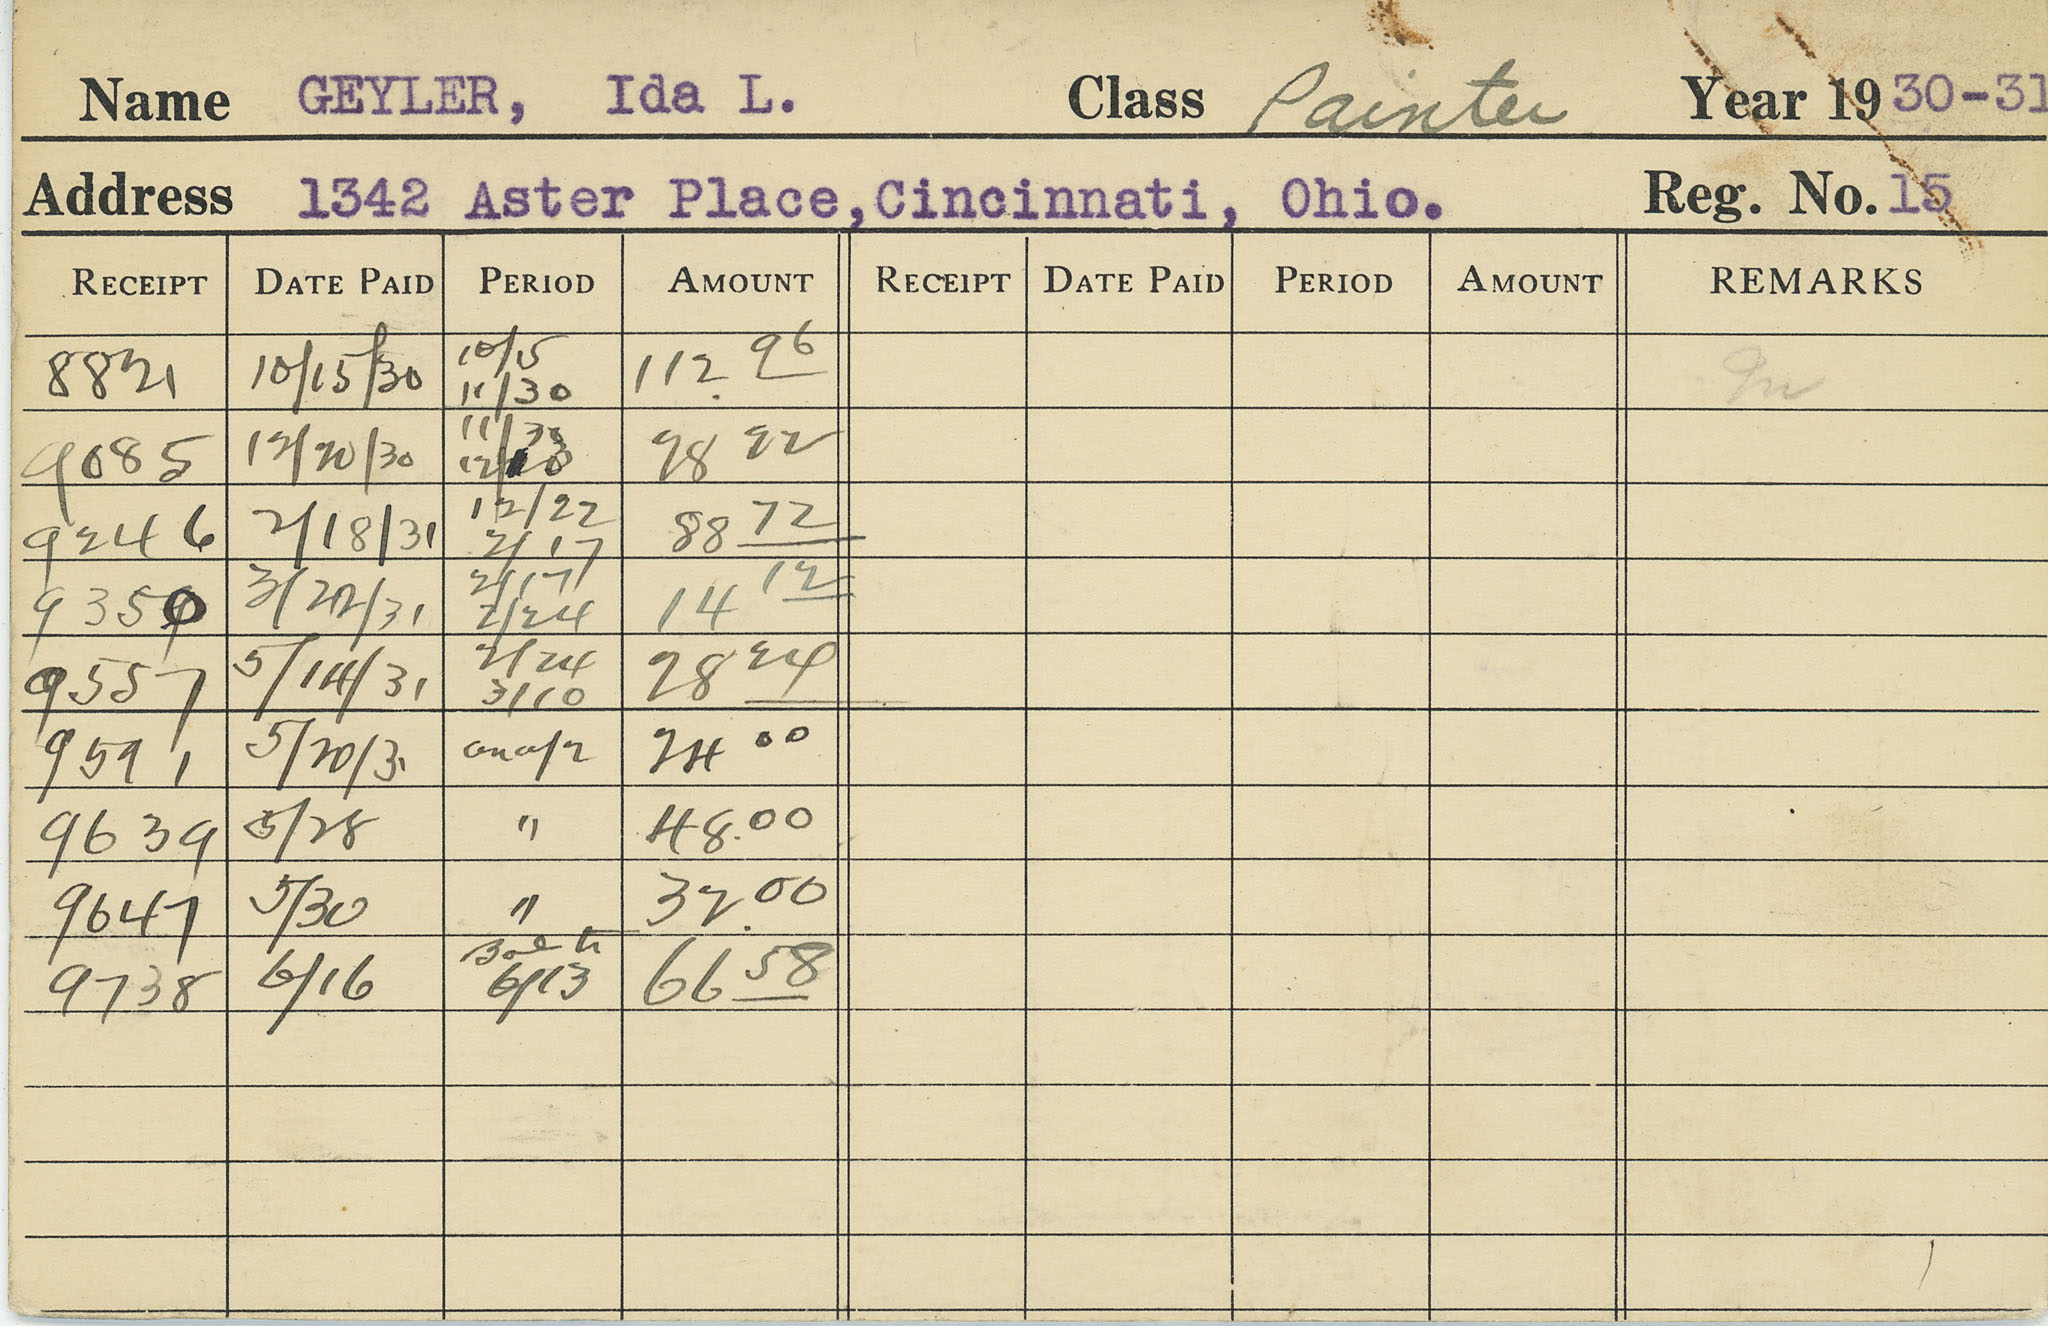 Name GEYLER, Ida L. Class Painter Year 1930-31
Address 1342 Aster Place, Cincinnati, Ohio. Reg. No. 15
RECEIPT DATE PAID PERIOD AMOUNT RECEIPT DATE PAID PERIOD AMOUNT REMARKS
8821 10/15/30 10/15 11/30 112.96
9085 12/20/30 11/30 28 22
9246 2/18/31 12/22 2/17 88 72
9350 3/20/31 2/17 2/24 14 12
9557 5/14/31 2/24 3/10 28 24
9591 5/20/31 on a/c 24 00
9639 5/28 " 48.00
9647 5/30 " 32.00
9738 6/16 Bal to 6/13 66 58